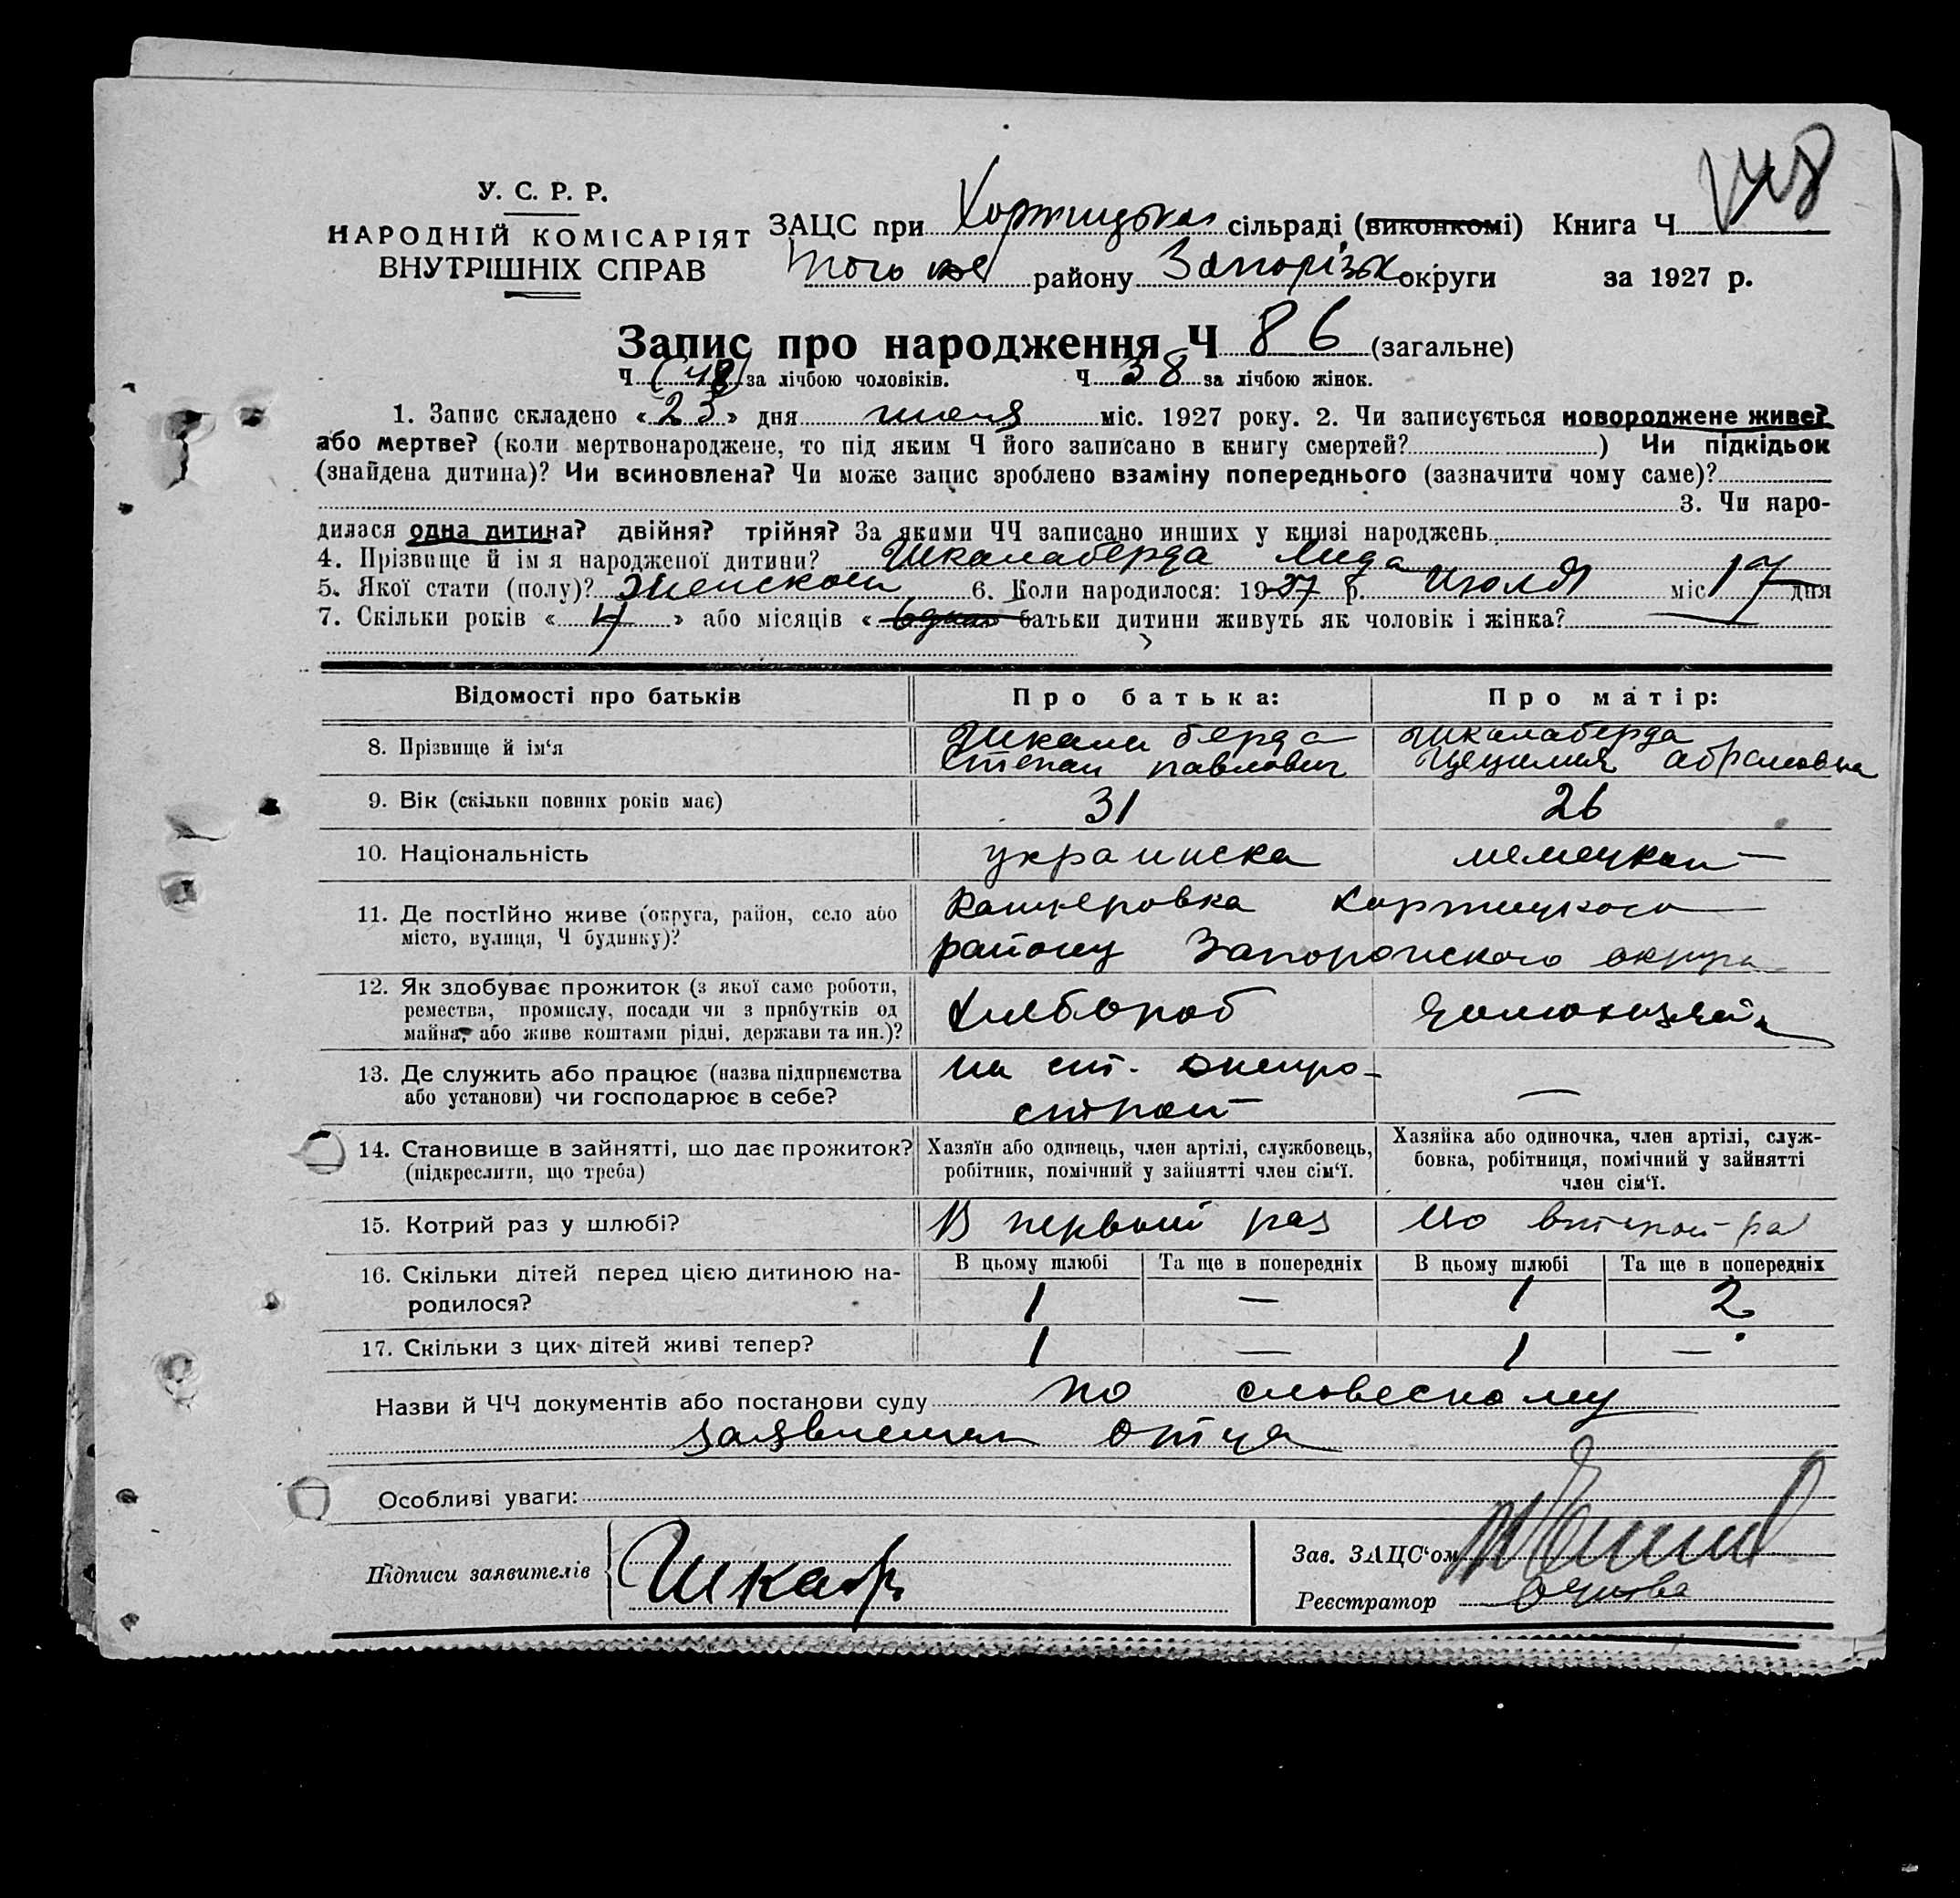 148
У. С. Р. Р.
НАРОДНІЙ КОМІСАРІЯТ
ВНУТРІШНІХ СПРАВ
ЗАЦС при Хортицькая сільраді, (виконкомі) Книга Ч
того же району Запорізьк округи за 1927 р.
Запис про народження Ч 86 (загальне)
Ч (48) за лічбою чоловіків. Ч 38 за лічбою жінок.
1. Запис складено «23» дня июля міс. 1927 року. 2. Чи записується новороджене живе?
або мертве? (коли мертвонароджене, то під яким Ч його записано в книгу смертей? ) Чи підкідьок
(знайдена дитина)? Чи всиновлена? Чи може запис зроблено взаміну попереднього (зазначити чому саме)?
3. Чи наро-
дилася одна дитина? двійня? трійня? За якими ЧЧ записано инших у книзі народжень
4. Прізвище й ім я народженої дитини? Шкалаберда Лида
5. Якої стати (полу)? Женской 6. Коли народилося: 1927 р. Июля міс 17 дня
7. Скільки років « 4 » або місяців « » батьки дитини живуть як чоловік і жінка?
Відомості про батьків Про батька: Про матір:
8. Прізвище й ім'я Шкалаберда Шкалаберда
Степан павлович Цецилия абрамовна
9. Вік (скільки повних років має) 31 26
10. Національність украинска немецкой
11. Де постійно живе (округа, район, село або Канцеровка Хортицкого
місто, вулиця, Ч будинку)? району Запорожского округа
12. Як здобуває прожиток (з якої саме роботи,
ремества, промислу, посади чи з прибутків од Хлебороб
майна, або живе коштами рідні, держави та ин.)?
13. Де служить або працює (назва підприємства на ст. днепро-
або установи) чи господарює в себе? строй —
14. Становище в зайнятті, що дає прожиток? Хазяїн або одинець, член артілі, службовець, Хазяйка або одиночка, член артілі, служ-
(підкреслити, що треба) робітник, помічний у зайнятті член сім'ї. бовка, робітниця, помічний у зайнятті
член сім'ї.
15. Котрий раз у шлюбі? В первый раз во второй раз
16. Скільки дітей перед цією дитиною на- В цьому шлюбі Та ще в попередніх В цьому шлюбі Та ще в попередніх
родилося? 1 — 1 2
17. Скільки з цих дітей живі тепер? 1 — 1 —
Назви й ЧЧ документів або постанови суду по словесному
заявлению отца
Особливі уваги:
Підписи заявителів Шкаб
Зав. ЗАЦС'ом
Реєстратор